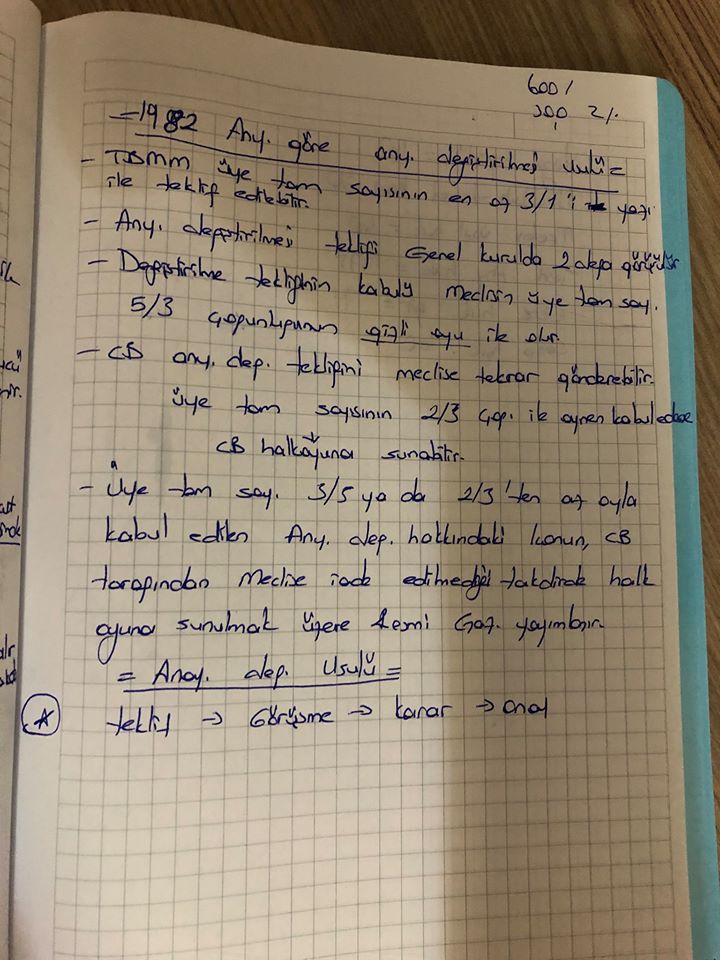 600/
300 2/.
= 1982 Any. göre any. değiştirilmesi usulü =
- TBMM üye tam sayısının en az 3/1'i yazı
ile teklif edilebilir.
- Any. değiştirilmesi teklifi Genel kurulda 2 defa görüşülür
- Değiştirilme teklifinin kabulü meclisin üye tam say.
5/3 çoğunluğunun gizli oyu ile olur.
- CB any. değ. teklifini meclise tekrar gönderebilir.
üye tam sayısının 2/3 çoğ. ile aynen kabul ederse
CB halkoyuna sunabilir.
- Üye tam say. 3/5 ya da 2/3'ten az oyla
kabul edilen Any. değ. hakkındaki kanun, CB
tarafından Meclise iade edilmediği takdirde halk
oyuna sunulmak üzere Resmi Gaz. yayımlanır.
= Anay. değ. Usulü =
teklif → Görüşme → karar → onay